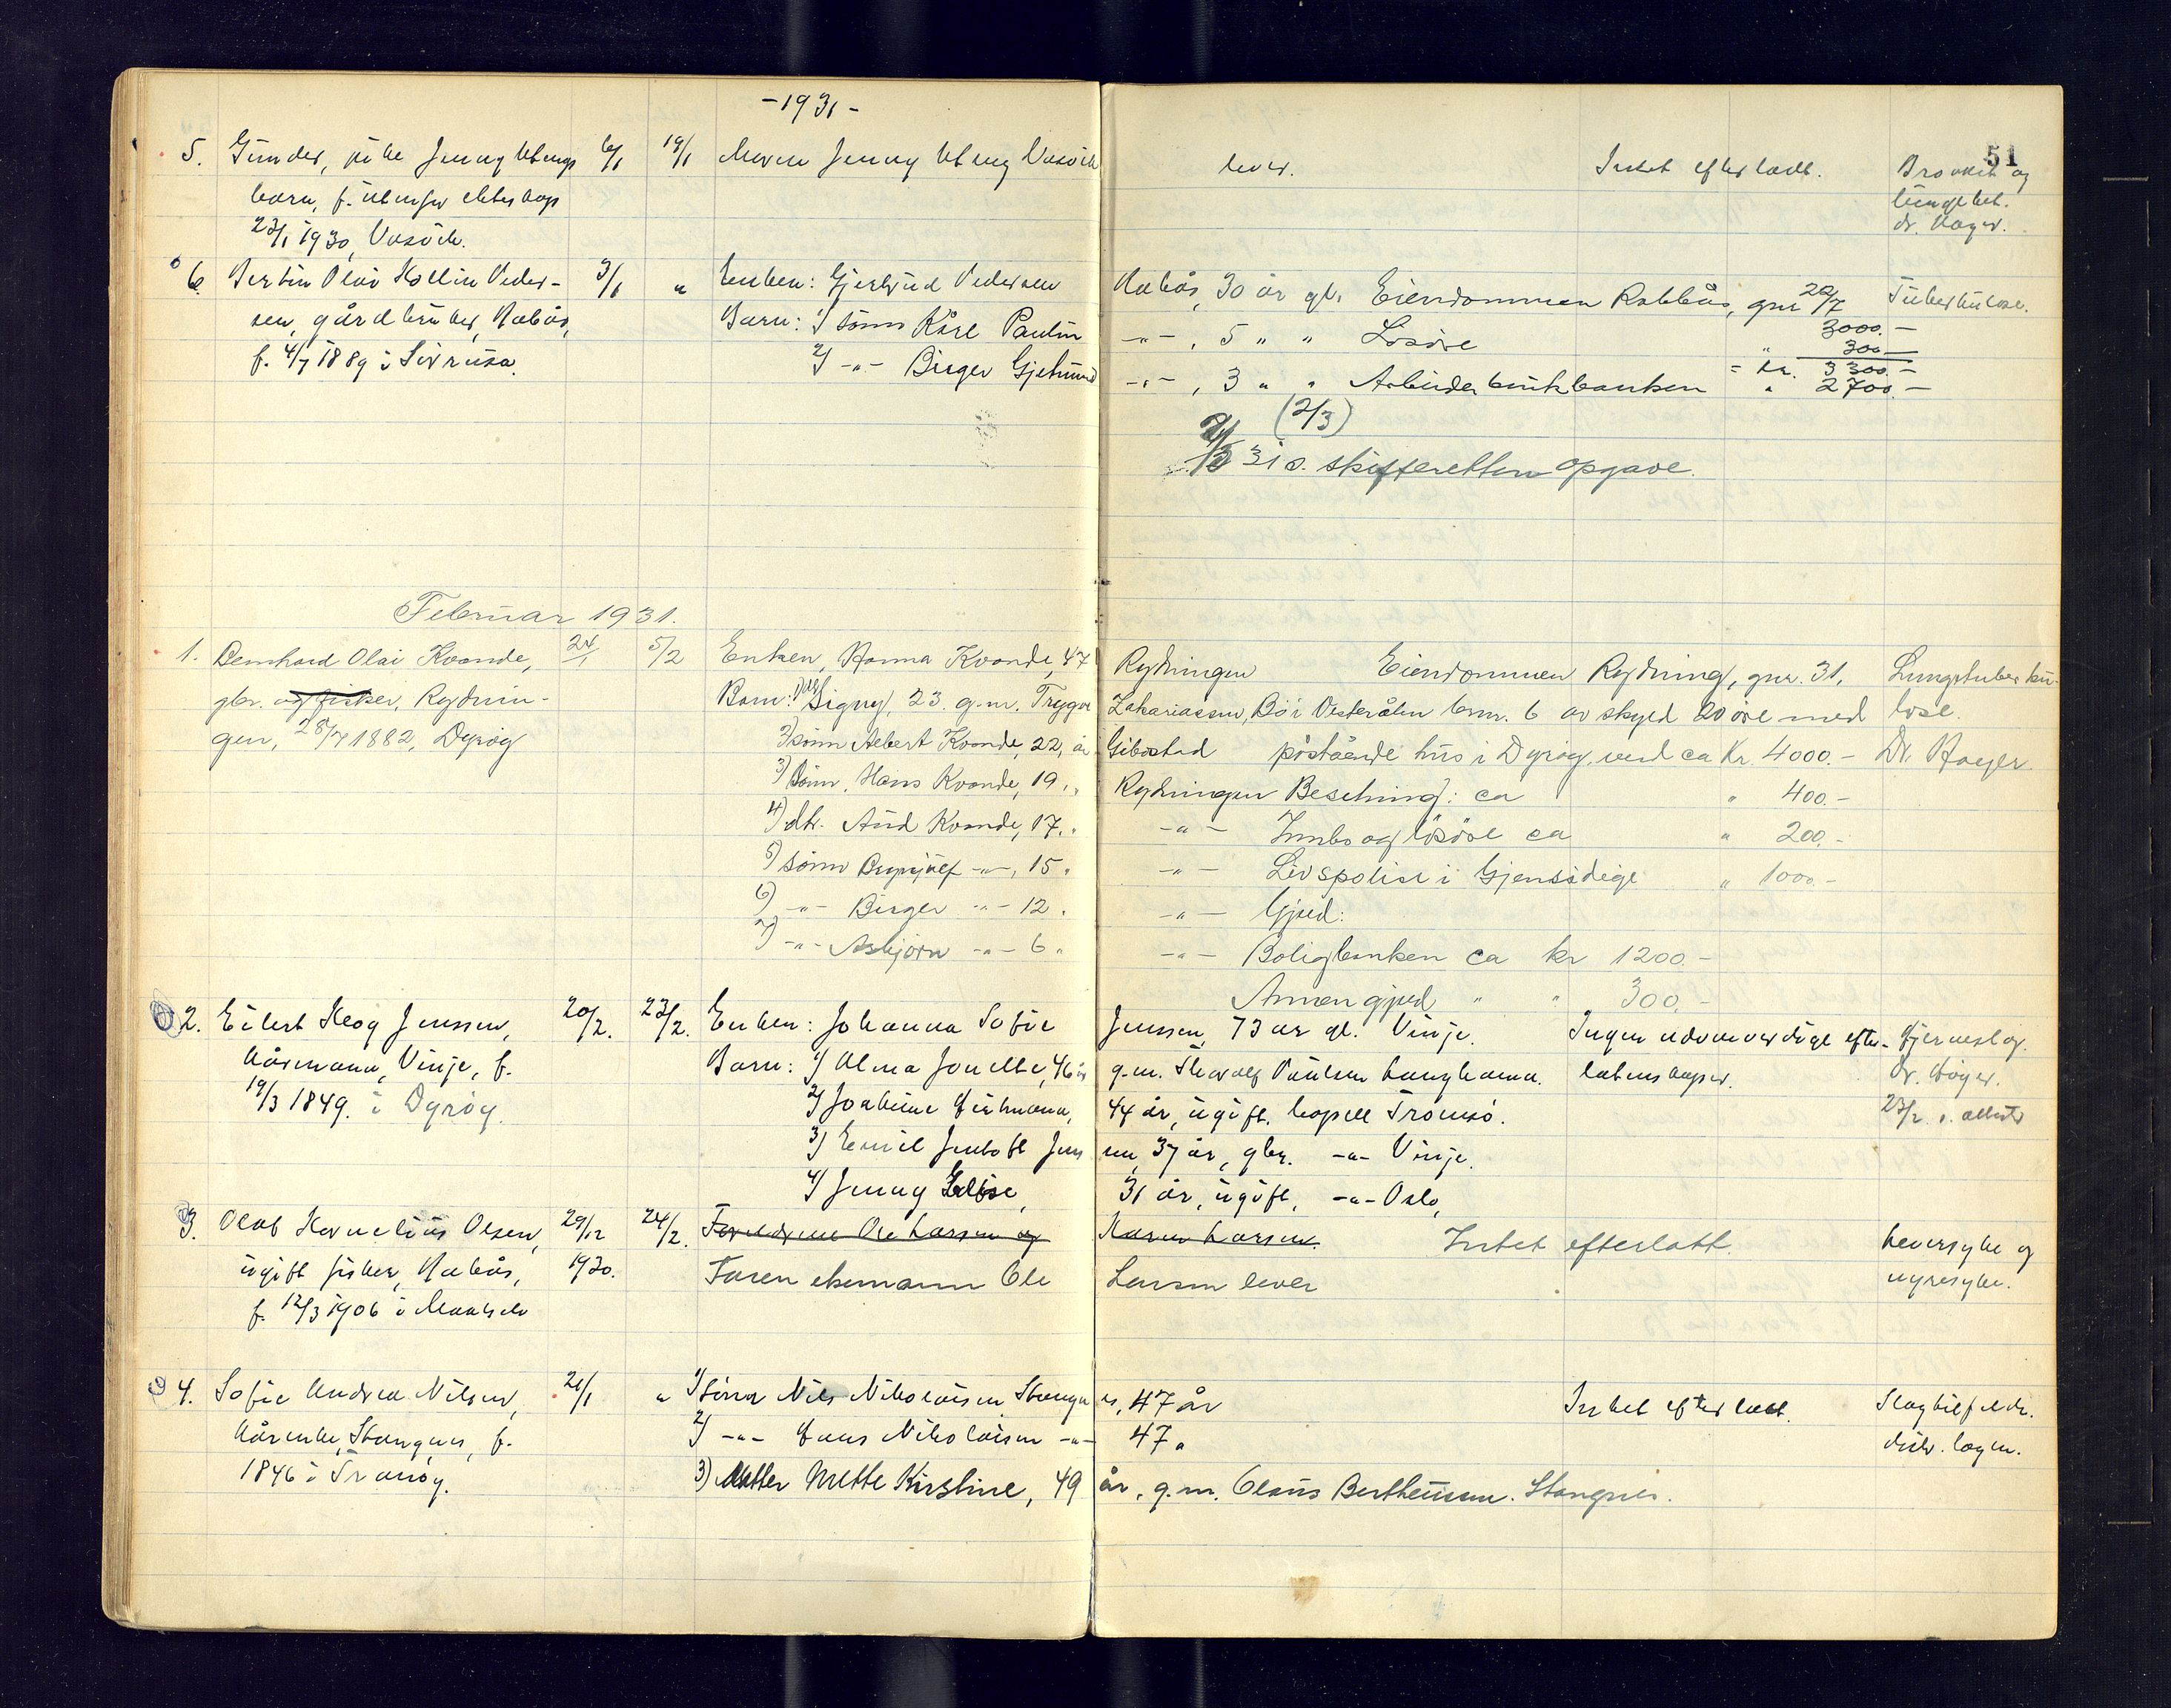 -1931-
51
5. Gunder, pike Jenny Utengs 6/1 19/1 Moren Jenny Uteng Vasvik lever. Intet efterladt. Bronkit og
barn, f. utenfor ekteskap lungebet.
23/1 1930, Vasvik. dr. Høyer.
6. Bertin Olai Kollin Peder- 3/1 " Enken: Gjertrud Pedersen Rabås, 30 år gl. Eiendommen Rabbås, gnr 20/7 Tuberkulose.
sen, gårdbruker, Rabås, Barn: 1) sønn Kåre Paulin -"-, 5 " " Løsøre 3000.-
" 300.-
f. 4/7 1889 i Sørreisa. 2) -"- Birger Gjetmund -"-, 3 " " Arbeiderbrukbanken = kr. 3300.-
" 2700.-
(2/3)
2/3 31 s. skifteretten opgave.
Februar 1931.
1. Bernhard Olai Kvande, 24/1 5/2 Enken, Hanna Kvande, 47 Rydningen Eiendommen Rydning, gnr. 31, Lungetuberku-
gbr. og fisker, Rydnin- Barn: 1) dtr Signy, 23. g.m. Trygve Zakariassen, Bø i Vesterålen brnr. 6 av skyld 20 øre med lose.
gen, 28/7 1882, Dyrøy 2) sønn Albert Kvande, 22, år Gibostad påstående hus i Dyrøy, verd ca Kr. 4000.- Dr. Høyer.
3) sønn, Hans Kvande, 19, " Rydningen Besetning: ca " 400.-
4) dtr. Aud Kvande, 17, " -"- Innbo og løsøre ca " 200.-
5) sønn Brynjulf -"-, 15 " -"- Livspolise i Gjensidige " 1000.-
6) -"- Birger -"- 12 " -"- Gjeld:
7) -"- Asbjørn -"- 6 " -"- Boligbanken ca kr 1200.-
Annen gjeld " " 300.-
2. Eilert Skog Jenssen, 20/2. 23/2. Enken: Johanna Sofie Jenssen, 73 år gl. Vinje. Ingen nevneverdige efter- Hjerneslag.
kårmann, Vinje, f. Barn: 1) Alma Jonette, 46 år g.m. Thorolf Paulsen Langhamn. latenskaper. Dr. Høyer.
19/3 1849. i Dyrøy. 2) Joakime Hermana, 44 år, ugift. bopell Tromsø. 23/2 s. attest
3) Emil Jentoft Jens sen, 37 år, gbr. -"- Vinje.
4) Jenny Elise, 31 år, ugift, -"- Oslo,
3. Olaf Kornelius Olsen, 29/12 24/2. Foreldrene Ole Larsen og Maren Larsen. Intet efterlatt. Leversyke og
ugift fisker, Rabås, 1930. Faren ekemann Ole Larsen lever nyresyke.
f. 12/3 1906 i Maalselv
4. Sofie Andrea Nilsen, 21/1 " 1) sønn Nils Nikolaisen Stangn es, 47 år Intet efterladt. Slagtilfelde.
kårenke, Stangnes, f. 2) -"- Hans Nikolaisen -"- 47 " distr. lægen.
1846 i Tranøy. 3) datter Mette Kirstine, 49 år, g.m. Claus Bertheussen. Stangnes.